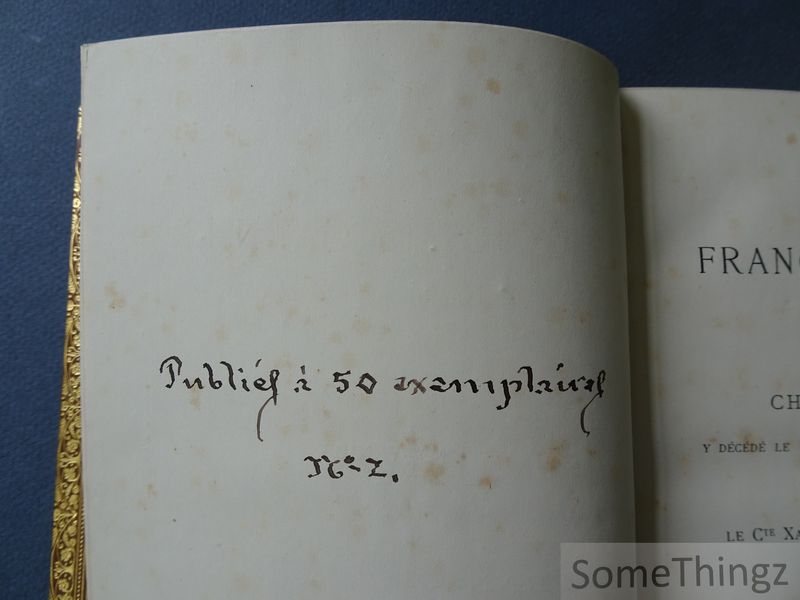 Publiés à 50 exemplaires
No 2.
FRANÇ
CH
Y DÉCÉDÉ LE
LE CTE XA
SomeThingz